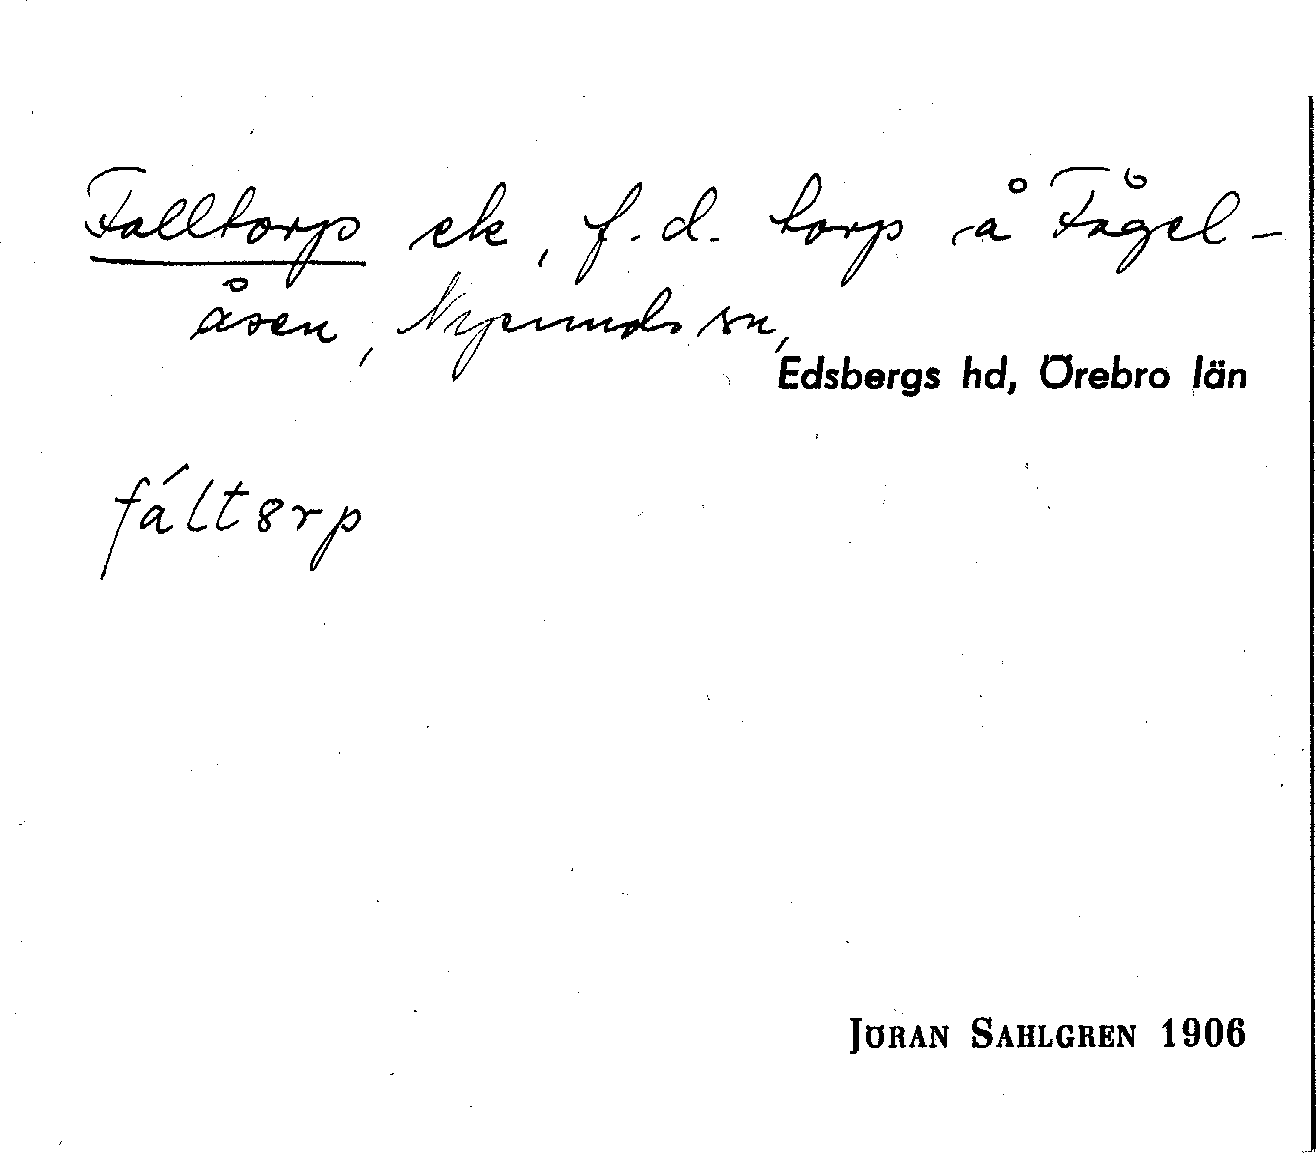 Falltorp ek, f.d. torp å Fågel-
åsen, Nysunds sn,
Edsbergs hd, Örebro län
fáltȣrp
JÖRAN SAHLGREN 1906